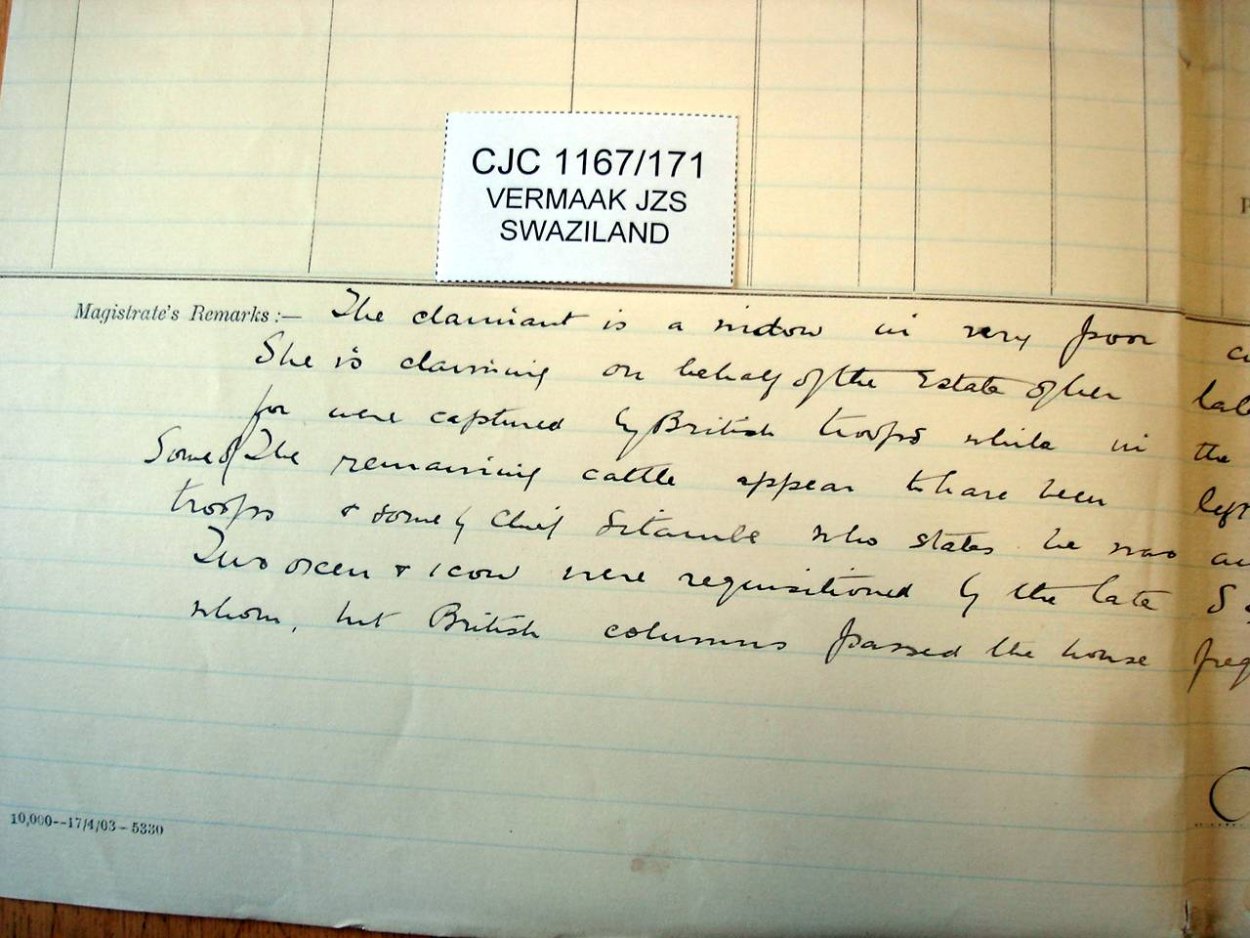 CJC 1167/171
VERMAAK JZS
SWAZILAND
Magistrate's Remarks :— The claimant is a widow in very poor
She is claiming on behalf of the Estate of her
for were captured by British troops while in the
Some of the remaining cattle appear to have been left
troops & some by Chief Sitambe who states he was
Two oxen & 1 cow were requisitioned by the late
whom, but British columns passed the house
10,000--17/4/03-5330